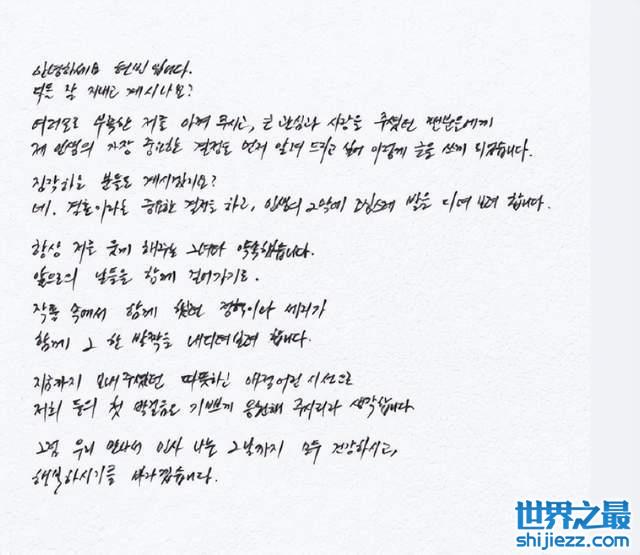 안녕하세요 현빈입니다.
다들 잘 지내고 계시나요?
여러모로 부족한 저를 아껴 주시고, 큰 관심과 사랑을 주셨던 팬분들에게
제 인생의 가장 중요한 결정도 먼저 알려 드리고 싶어 이렇게 글을 쓰게 되었습니다.
짐작하는 분들도 계시겠지요?
네. 결혼이라는 중요한 결정을 하고, 인생의 2막에 조심스레 발을 디뎌 보려 합니다.
항상 저를 웃게 해주는 그녀와 약속했습니다.
앞으로의 날들을 함께 걸어가기로.
작품 속에서 함께 했던 정혁이와 세리가
함께 그 한 발짝을 내디뎌보려 합니다.
지금까지 보내주셨던 따뜻하신 애정어린 시선으로
저희 둘의 첫 발걸음도 기쁘게 응원해 주시리라 생각합니다
그럼 우리 만나서 인사 나눌 그날까지 모두 건강하시고,
행복하시기를 바라겠습니다.
世界之最
shijiezz.com